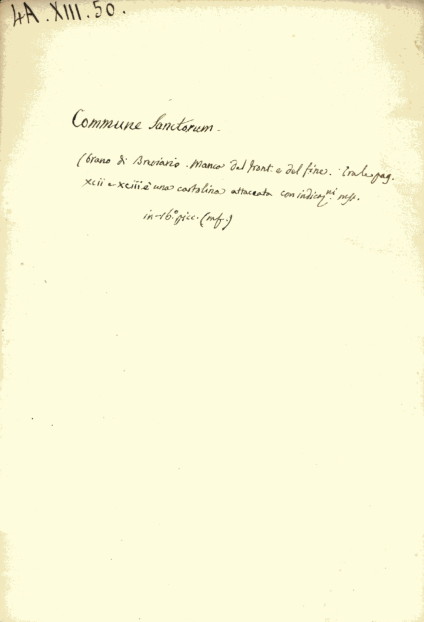 4A.XIII.50.
Commune Sanctorum.
(brano di Breviario. Manca del front. e del fine. Tra le pag.
xcii e xciii è una cartolina attaccata con indicaz.ni mss.
in-16.º picc. (mf.)